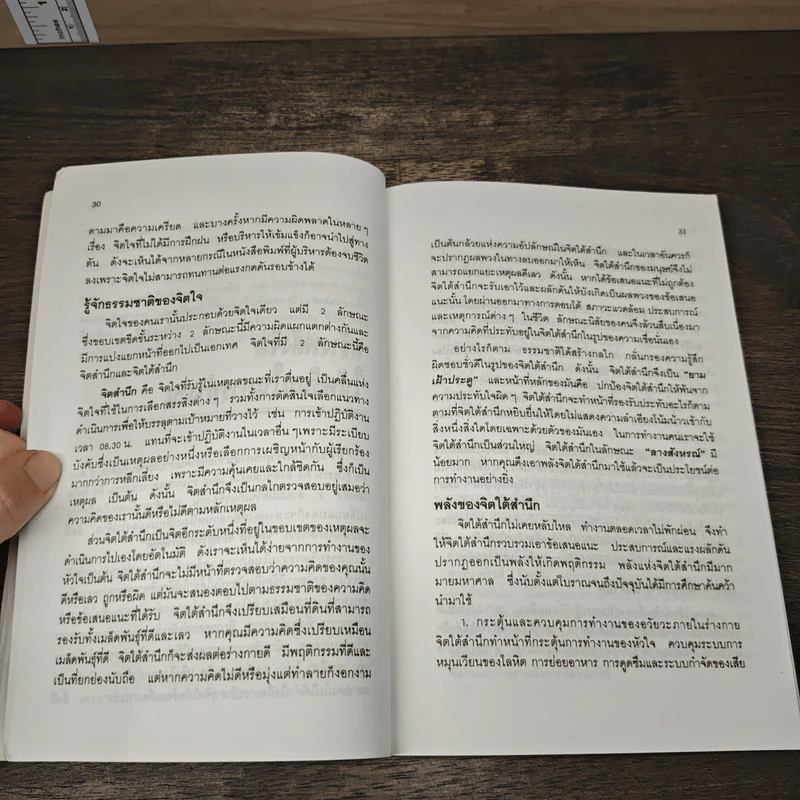 1
2
inches
30
ตามมาคือความเครียด และบางครั้งหากมีความผิดพลาดในหลายๆ
เรื่อง จิตใจที่ไม่ได้มีการฝึกฝน หรือบริหารให้เข้มแข็งก็อาจนำไปสู่ทาง
ตัน ดังจะเห็นได้จากหลายกรณีในหนังสือพิมพ์ที่ผู้บริหารต้องจบชีวิต
ลงเพราะจิตใจไม่สามารถทนทานต่อแรงกดดันรอบข้างได้
รู้จักธรรมชาติของจิตใจ
จิตใจของคนเรานั้นประกอบด้วยจิตใจเดียว แต่มี 2 ลักษณะ
ซึ่งขอบเขตขีดขั้นระหว่าง 2 ลักษณะนี้มีความผิดแผกแตกต่างกันและ
มีการแบ่งแยกหน้าที่ออกไปเป็นเอกเทศ จิตใจที่มี 2 ลักษณะนี้คือ
จิตสำนึกและจิตใต้สำนึก
จิตสำนึก คือ จิตใจที่รับรู้ในเหตุผลขณะที่เราตื่นอยู่ เป็นคลื่นแห่ง
จิตใจที่ใช้ในการเลือกสรรสิ่งต่างๆ รวมทั้งการตัดสินใจเลือกแนวทาง
ดำเนินการเพื่อให้บรรลุตามเป้าหมายที่วางไว้ เช่น การเข้าปฏิบัติงาน
เวลา 08.30 น. แทนที่จะเข้าปฏิบัติงานในเวลาอื่นๆเพราะมีระเบียบ
บังคับซึ่งเป็นเหตุผลอย่างหนึ่งหรือเลือกการเผชิญหน้ากับผู้เรียกร้อง
มากกว่าการหลีกเลี่ยง เพราะมีความคุ้นเคยและใกล้ชิดกัน ซึ่งก็เป็น
เหตุผล เป็นต้น ดังนั้น จิตสำนึกจึงเป็นกลไกตรวจสอบอยู่เสมอว่า
ความคิดของเรานั้นดีหรือไม่ดีตามหลักเหตุผล
ส่วนจิตใต้สำนึกเป็นจิตอีกระดับหนึ่งที่อยู่ในขอบเขตของเหตุผลจะ
ดำเนินการไปเองโดยอัตโนมัติ ดังเราจะเห็นได้ง่ายจากการทำงานของ
หัวใจเป็นต้น จิตใต้สำนึกจะไม่มีหน้าที่ตรวจสอบว่าความคิดของคุณนั้น
ดีหรือเลว ถูกหรือผิด แต่มันจะสนองตอบไปตามธรรมชาติของความคิด
หรือข้อเสนอแนะที่ได้รับ จิตใต้สำนึกจึงเปรียบเสมือนที่ดินที่สามารถ
รองรับทั้งเมล็ดพันธุ์ที่ดีและเลว หากคุณมีความคิดซึ่งเปรียบเหมือน
เมล็ดพันธุ์ที่ดี จิตใต้สำนึกก็จะส่งผลต่อร่างกายดี มีพฤติกรรมที่ดีและ
เป็นที่ยกย่องนับถือ แต่หากความคิดไม่ดีหรือมุ่งแต่ทำลายก็งอกงาม
31
เป็นต้นกล้วยแห่งความอัปลักษณ์ในจิตใต้สำนึก และในเวลาอันควรก็
จะปรากฏผลพวงในทางลบออกมาให้เห็น จิตใต้สำนึกของมนุษย์จึงไม่
สามารถแยกแยะเหตุผลดีเลว ดังนั้น หากได้ข้อเสนอแนะที่ไม่ถูกต้อง
จิตใต้สำนึกจะรับเอาไว้และผลักดันให้บังเกิดเป็นผลพวงของข้อเสนอ
แนะนั้น โดยผ่านออกมาทางการตอบโต้ สภาวะแวดล้อม ประสบการณ์
และเหตุการณ์ต่างๆ ในชีวิต ลักษณะนิสัยของคนจึงล้วนสืบเนื่องมา
จากความคิดที่ประทับอยู่ในจิตใต้สำนึกในรูปของความเชื่อนั่นเอง
อย่างไรก็ตาม ธรรมชาติได้สร้างกลไก กลั่นกรองความรู้สึก
ผิดชอบชั่วดีในรูปของจิตใต้สำนึก ดังนั้น จิตใต้สำนึกจึงเป็น "ยาม
เฝ้าประตู" และหน้าที่หลักของมันคือ ปกป้องจิตใต้สำนึกให้พ้นจาก
ความประทับใจผิดๆ จิตใต้สำนึกจะทำหน้าที่รองรับประทับอะไรก็ตาม
ตามที่จิตใต้สำนึกหยิบยื่นให้โดยไม่แสดงความลำเอียงโน้มน้าวเข้ากับ
สิ่งหนึ่งสิ่งใดโดยเฉพาะด้วยตัวของมันเอง ในการทำงานคนเราจะใช้
จิตใต้สำนึกเป็นส่วนใหญ่ จิตใต้สำนึกในลักษณะ "ลางสังหรณ์" มี
น้อยมาก หากคุณดึงเอาพลังจิตใต้สำนึกมาใช้แล้วจะเป็นประโยชน์ต่อ
การทำงานอย่างยิ่ง
พลังของจิตใต้สำนึก
จิตใต้สำนึกไม่เคยหลับใหล ทำงานตลอดเวลาไม่พักผ่อน จึงทำ
ให้จิตใต้สำนึกรวบรวมเอาข้อเสนอแนะ ประสบการณ์และแรงผลักดัน
ปรากฏออกเป็นพลังให้เกิดพฤติกรรม พลังแห่งจิตใต้สำนึกมีมาก
มายมหาศาล ซึ่งนับตั้งแต่โบราณจนถึงปัจจุบันได้มีการศึกษาค้นคว้า
นำมาใช้
1. กระตุ้นและควบคุมการทำงานของอวัยวะภายในร่างกาย
จิตใต้สำนึกทำหน้าที่กระตุ้นการทำงานของหัวใจ ควบคุมระบบการ
หมุนเวียนของโลหิต การย่อยอาหาร การดูดซึมและระบบกำจัดของเสีย